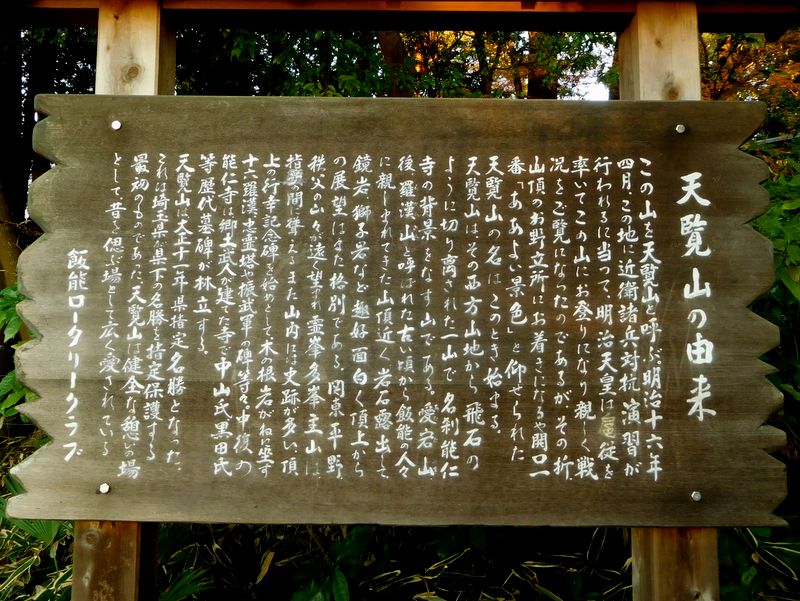 天覧山の由来
この山を天覧山と呼ぶ。明治十六年
四月、この地に近衛諸兵対抗演習が
行われるに当って、明治天皇は扈従を
率いてこの山にお登りになり親しく戦
況をご覧になったのであるが、その折、
山頂のお野立所にお着きになるや開口一
番「ああよい景色」と仰せられた
天覧山の名はこのとき始まる。
天覧山はその西方山地から、飛石の
ように切り離された一山で、名刹能仁
寺の背景をなす山である。愛宕山、
後、羅漢山と呼ばれた古い頃から飯能の人々
に親しまれてきた山頂近く岩石露出して、
鏡岩、獅子岩など趣好面白く頂上から
の展望はまた格別である。関東平野、
秩父の山々が遠望され霊峯冬峯主山は
指點の間に聳える。また山内には史跡が多い、頂
上の行幸記念碑を始めとして木の根岩がねに坐す
十六羅漢、忠霊塔や振武軍の碑等々、中腹の
能仁寺は郷土武人が建てた寺で中山氏、黒田氏
等歴代墓碑が林立する。
天覧山は大正十一年県指定名勝となった。
これは埼玉県が県下の名勝を指定保護する
最初のものであった。天覧山は健全な憩いの場
として昔を偲ぶ場として広く愛されている
飯能ロータリークラブ